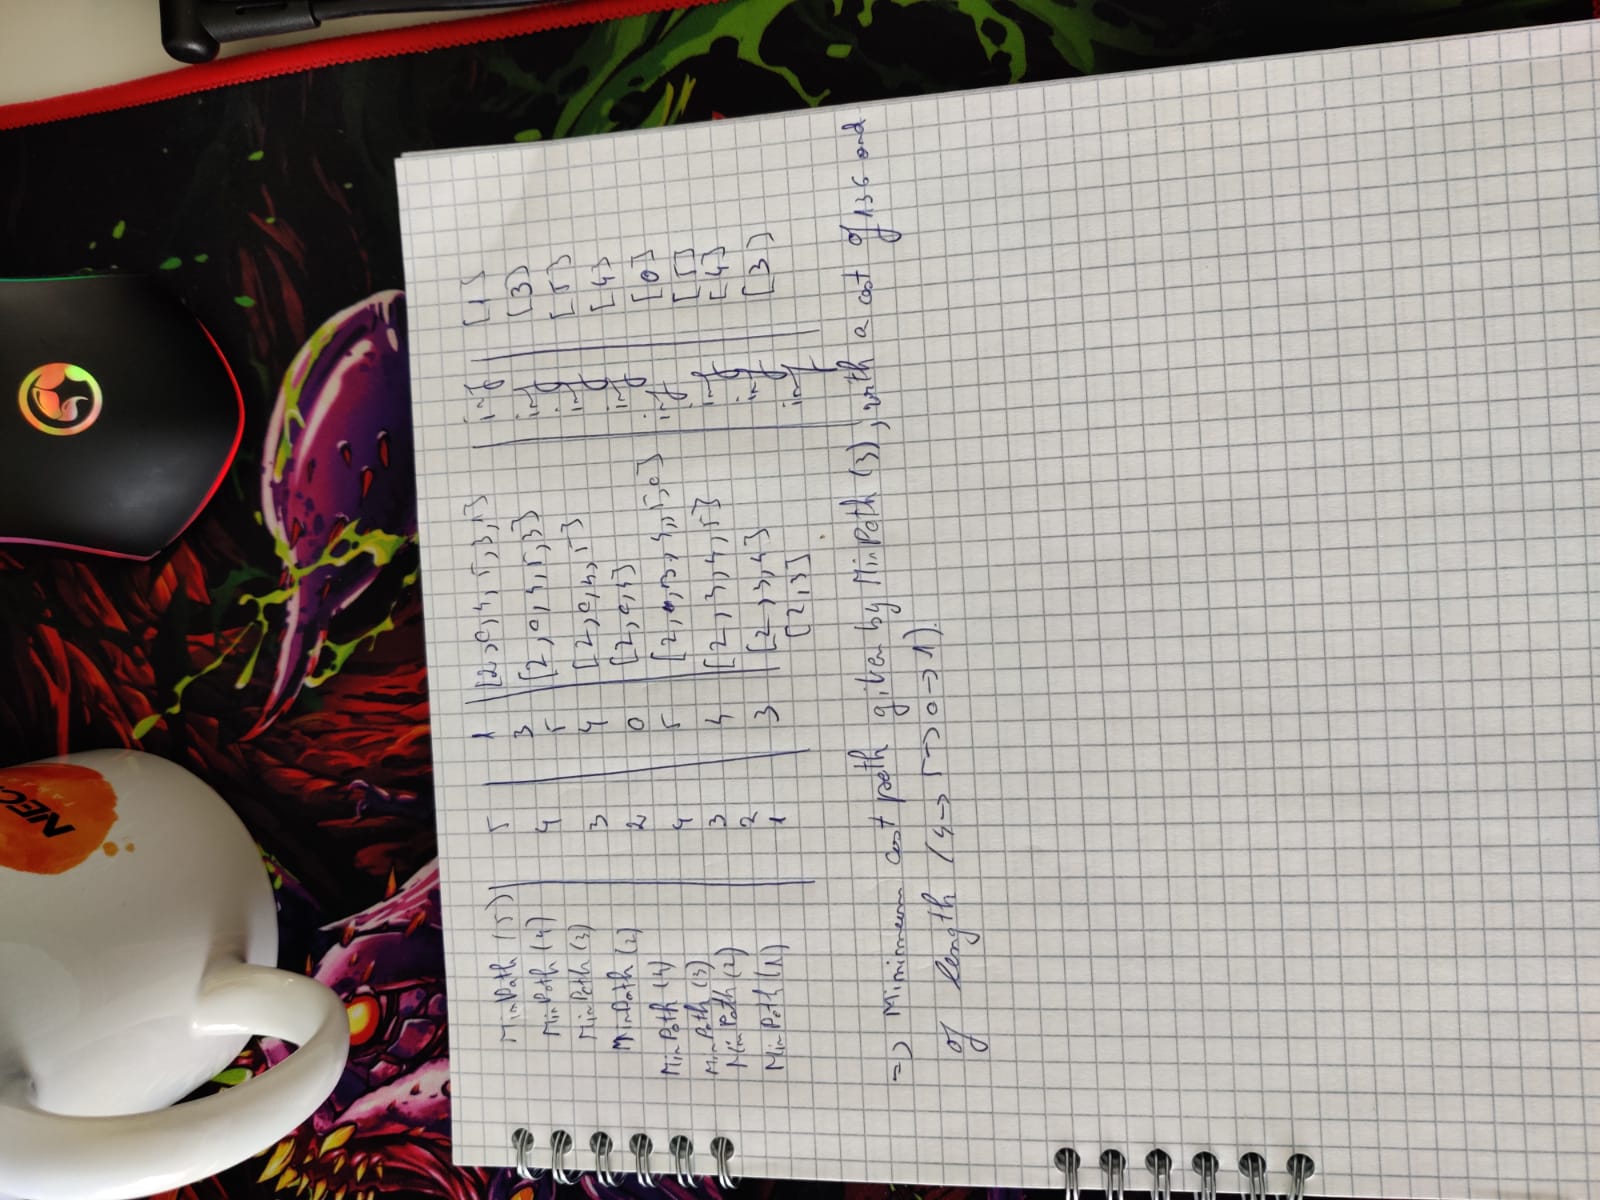 MinPath (5) | 5 | 1 | [2,0,4,5,3,1] | inf | [1]
MinPath (4) | 4 | 3 | [2,0,4,5,3] | inf | [3]
MinPath (3) | 3 | 5 | [2,0,4,5] | inf | [5]
MinPath (2) | 2 | 4 | [2,0,4] | inf | [4]
MinPath (4) | 4 | 0 | [2, ,3,4,5,0] | inf | [0]
MinPath (3) | 3 | 5 | [2,3,4,5] | inf | [5]
MinPath (2) | 2 | 4 | [2,3,4] | inf | [4]
MinPath (1) | 1 | 3 | [2,3] | inf | [3]
=> Minimum cost path given by MinPath (3), with a cost of 136 and
of length (4->5->0->1).
NEC